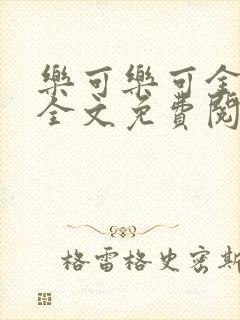 樂可樂可全
全文免費閱
格雷格史密斯